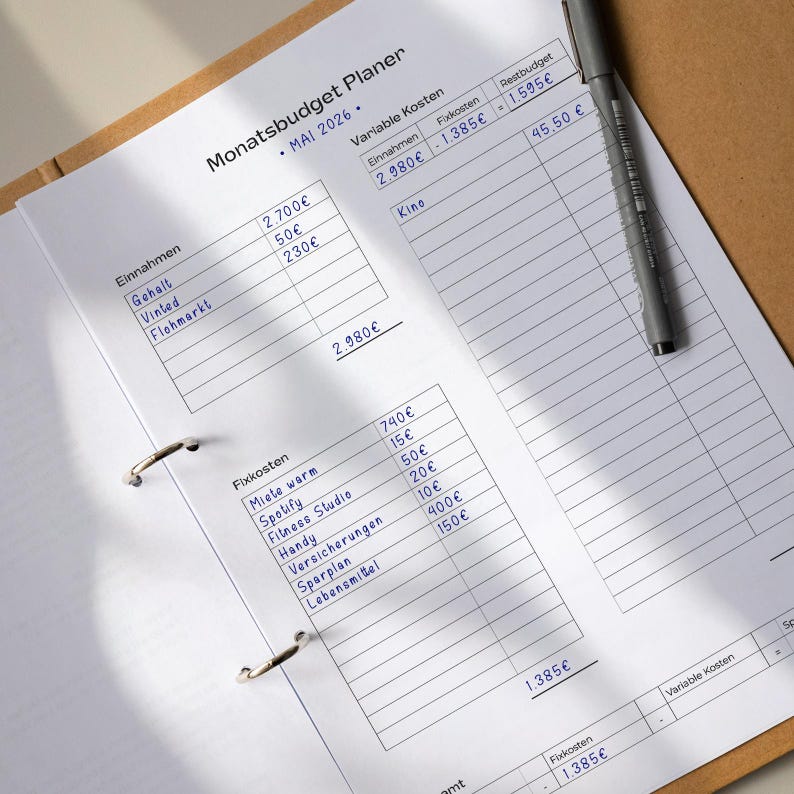 Monatsbudget Planer
• MAI 2026 •
Einnahmen
Gehalt 2.700€
Vinted 50€
Flohmarkt 230€
2.980€
Fixkosten
Miete warm 740€
Spotify 15€
Fitness Studio 50€
Handy 20€
Versicherungen 10€
Sparplan 400€
Lebensmittel 150€
1.385€
Variable Kosten
Einnahmen Fixkosten Restbudget
2.980€ - 1.385€ = 1.595€
Kino 45.50 €
amt Fixkosten Variable Kosten Sp
- 1.385€ - =